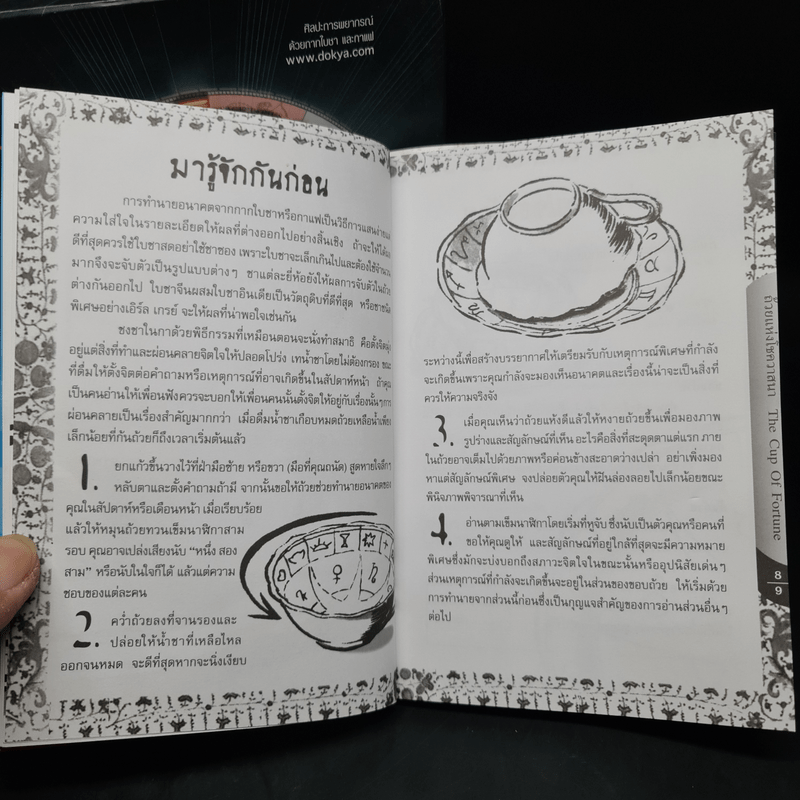 ศิลปะการพยากรณ์
ด้วยกากใบชา และกาแฟ
www.dokya.com
มารู้จักกันก่อน
การทำนายอนาคตจากกากใบชาหรือกาแฟเป็นวิธีการแสนง่าย
ความใส่ใจในรายละเอียดให้ผลที่ต่างออกไปอย่างสิ้นเชิง ถ้าจะให้ได้ผล
ดีที่สุดควรใช้ใบชาสดอย่าใช้ชาซอง เพราะใบชาจะเล็กเกินไปและต้องใช้จำนวน
มากจึงจะจับตัวเป็นรูปแบบต่างๆ ชาแต่ละยี่ห้อยังให้ผลการจับตัวในถ้วย
ต่างกันออกไป ใบชาจีนผสมใบชาอินเดียเป็นวัตถุดิบที่ดีที่สุด หรือชาชนิด
พิเศษอย่างเอิร์ล เกรย์ จะให้ผลที่น่าพอใจเช่นกัน
ชงชาในกาด้วยพิธีกรรมที่เหมือนตอนจะนั่งทำสมาธิ คือตั้งจิตมุ่ง
อยู่แต่สิ่งที่ทำและผ่อนคลายจิตใจให้ปลอดโปร่ง เทน้ำชาโดยไม่ต้องกรอง ขณะ
ที่ดื่มให้ตั้งจิตต่อคำถามหรือเหตุการณ์ที่อาจเกิดขึ้นในสัปดาห์หน้า ถ้าคุณ
เป็นคนอ่านให้เพื่อนฟังควรจะบอกให้เพื่อนคนนั้นตั้งจิตให้อยู่กับเรื่องนั้นๆ การ
ผ่อนคลายเป็นเรื่องสำคัญมากกว่า เมื่อดื่มน้ำชาเกือบหมดถ้วยเหลือน้ำเพียง
เล็กน้อยที่ก้นถ้วยก็ถึงเวลาเริ่มต้นแล้ว
1. ยกแก้วขึ้นวางไว้ที่ฝ่ามือซ้าย หรือขวา (มือที่คุณถนัด) สูดหายใจลึกๆ
หลับตาและตั้งคำถามถ้ามี จากนั้นขอให้ถ้วยช่วยทำนายอนาคตของ
คุณในสัปดาห์หรือเดือนหน้า เมื่อเรียบร้อย
แล้วให้หมุนถ้วยทวนเข็มนาฬิกาสาม
รอบ คุณอาจเปล่งเสียงนับ “หนึ่ง สอง
สาม” หรือนับในใจก็ได้ แล้วแต่ความ
ชอบของแต่ละคน
2. คว่ำถ้วยลงที่จานรองและ
ปล่อยให้น้ำชาที่เหลือไหล
ออกจนหมด จะดีที่สุดหากจะนิ่งเงียบ
ระหว่างนี้เพื่อสร้างบรรยากาศให้เตรียมรับกับเหตุการณ์พิเศษที่กำลัง
จะเกิดขึ้นเพราะคุณกำลังจะมองเห็นอนาคตและเรื่องนี้น่าจะเป็นสิ่งที่
ควรให้ความจริงจัง
3. เมื่อคุณเห็นว่าถ้วยแห้งดีแล้วให้หงายถ้วยขึ้นเพื่อมองภาพ
รูปร่างและสัญลักษณ์ที่เห็น อะไรคือสิ่งที่สะดุดตาแต่แรก ภาย
ในถ้วยอาจเต็มไปด้วยภาพหรือค่อนข้างสะอาดว่างเปล่า อย่าเพิ่งมอง
หาแต่สัญลักษณ์พิเศษ จงปล่อยตัวคุณให้ฝันล่องลอยไปเล็กน้อยขณะ
พินิจภาพพิจารณาที่เห็น
4. อ่านตามเข็มนาฬิกาโดยเริ่มที่หูจับ ซึ่งนับเป็นตัวคุณหรือคนที่
ขอให้คุณดูให้ และสัญลักษณ์ที่อยู่ใกล้ที่สุดจะมีความหมาย
พิเศษซึ่งมักจะบ่งบอกถึงสภาวะจิตใจในขณะนั้นหรืออุปนิสัยเด่นๆ
ส่วนเหตุการณ์ที่กำลังจะเกิดขึ้นจะอยู่ในส่วนของขอบถ้วย ให้เริ่มด้วย
การทำนายจากส่วนนี้ก่อนซึ่งเป็นกุญแจสำคัญของการอ่านส่วนอื่นๆ
ต่อไป
ถ้วยแห่งโชควาสนา The Cup Of Fortune
8
9